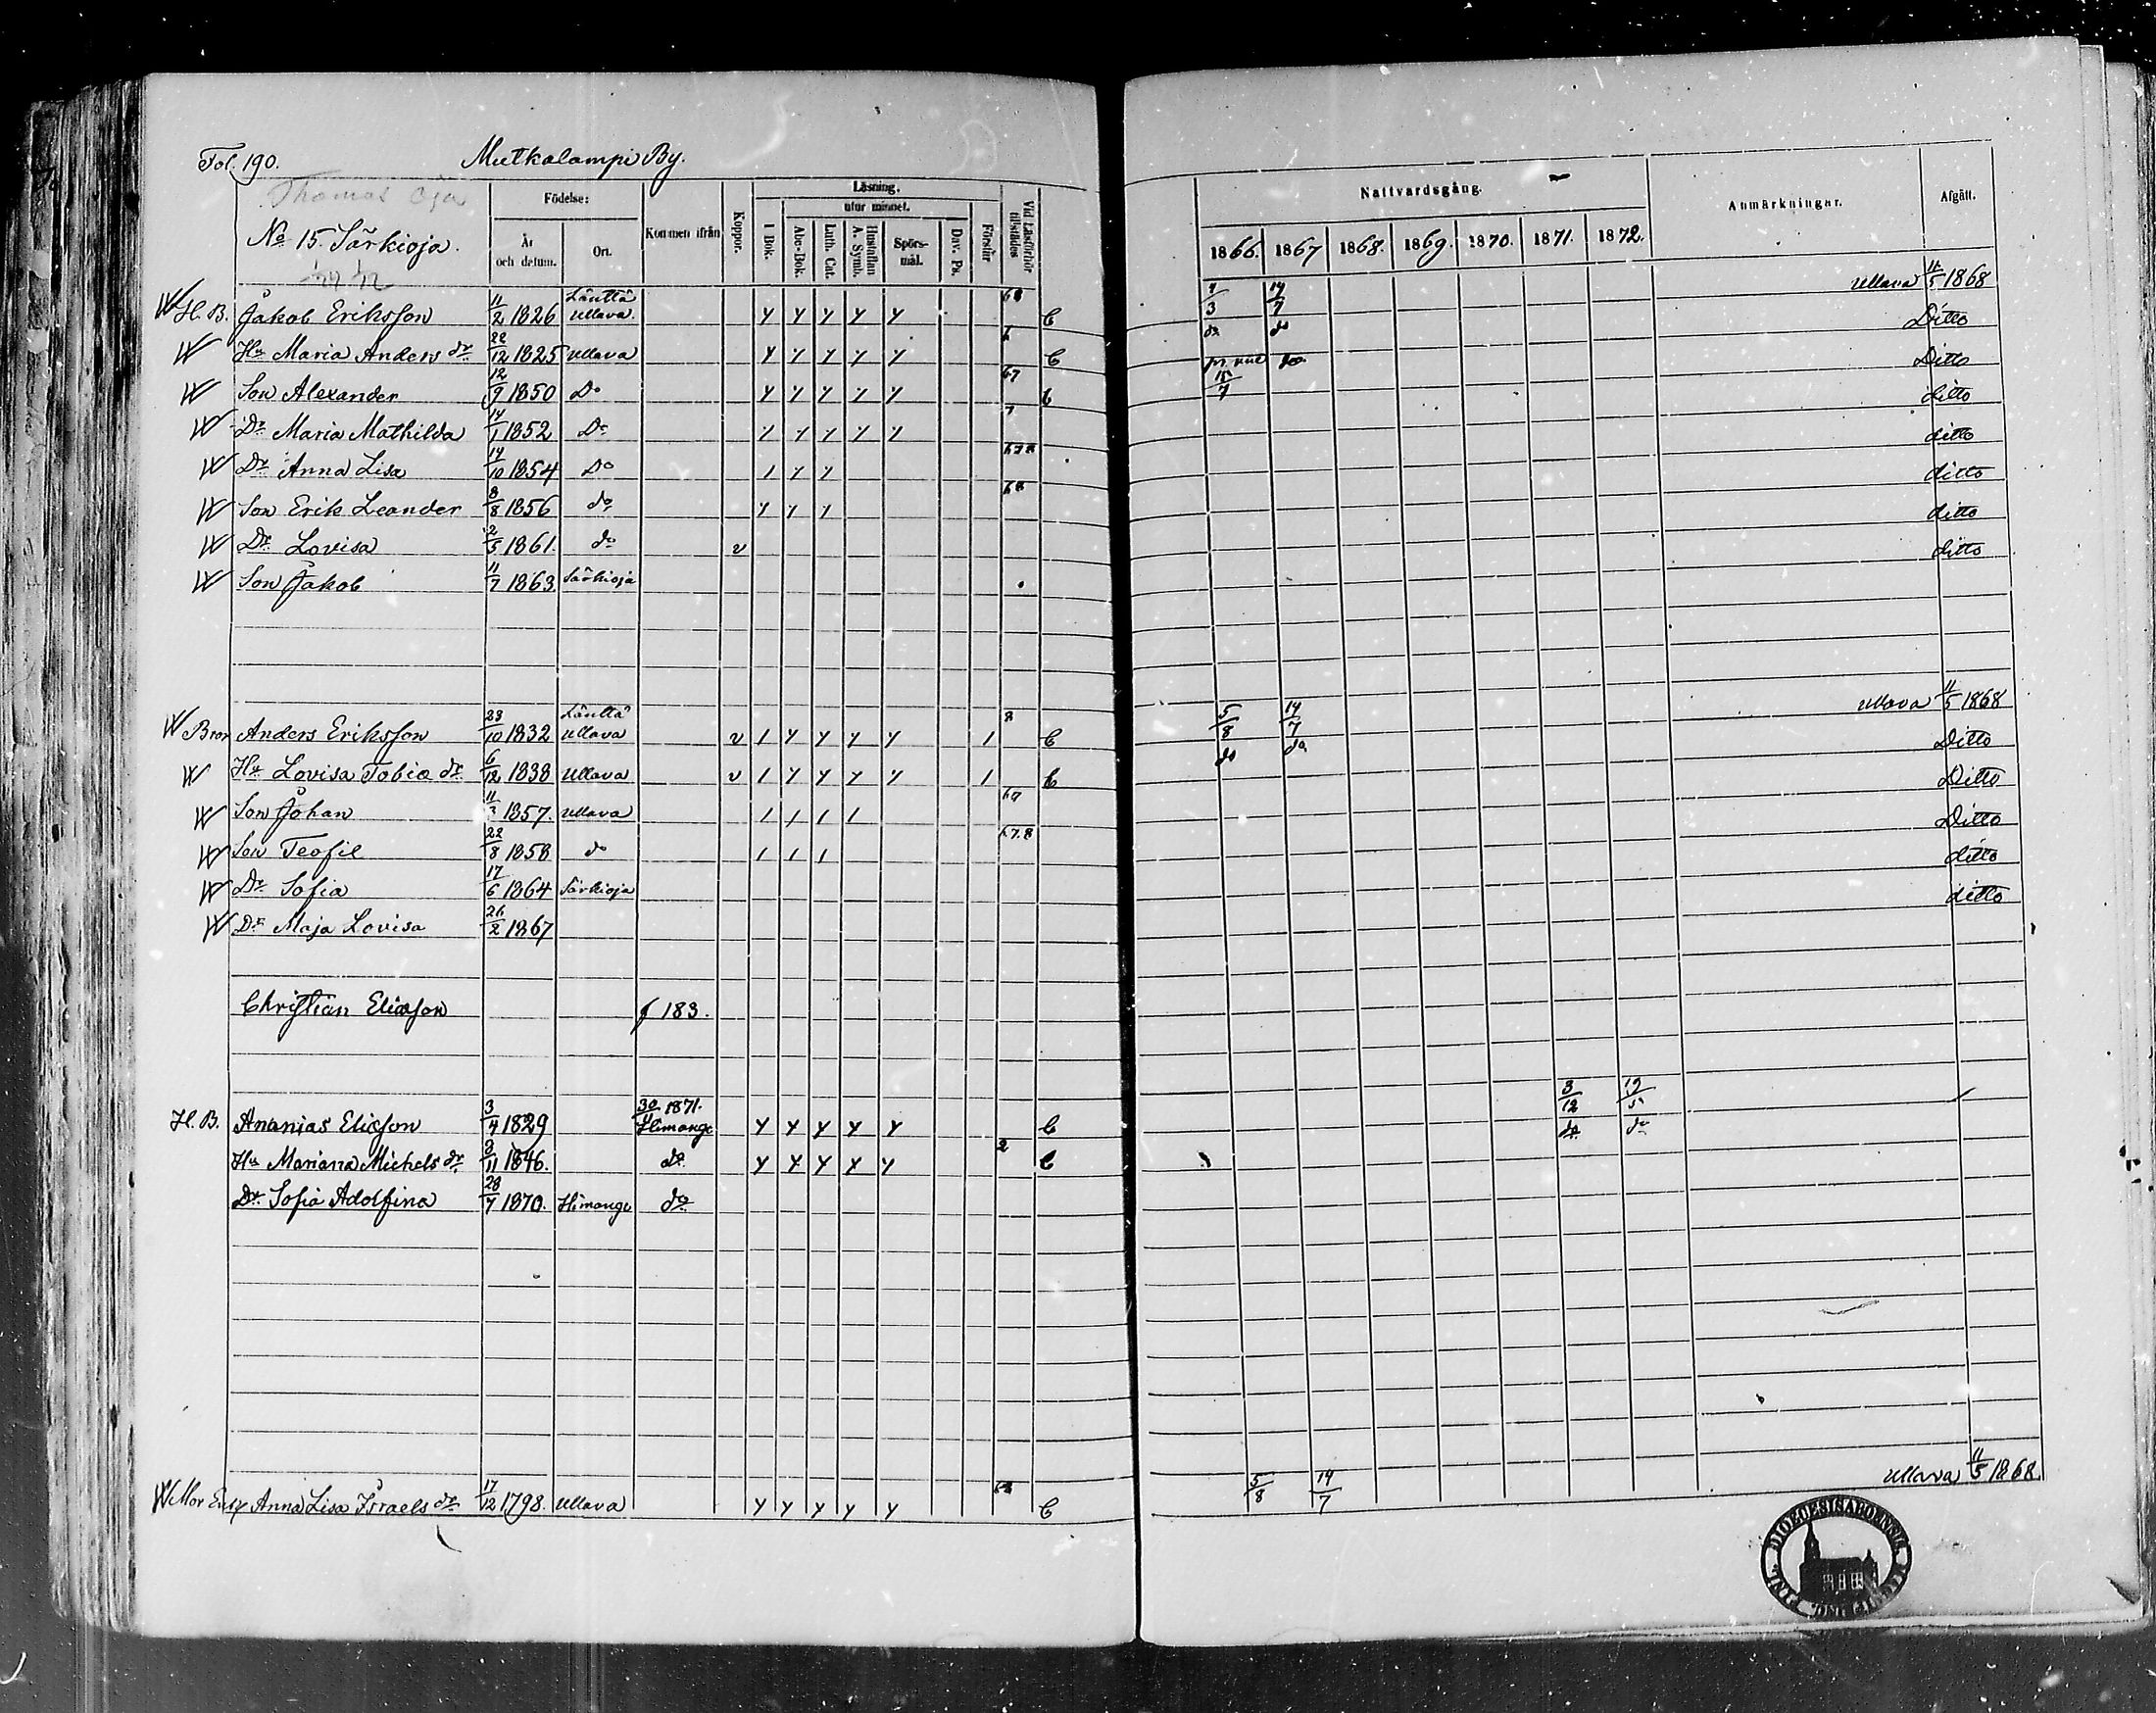 Fol. 190. Mutkalampi By.
Thomas Oja
No 15. Särkioja.
Födelse:
År och datum.
Ort.
Kommen ifrån
Koppor.
Läsning.
utur minnet.
I Bok.
Abc-Bok.
Luth. Cat.
Hustaflan A. Symb.
Spörsmål.
Dav. Ps.
Förstår
Vid Läsförhör tillstädes
Nattvardsgång.
1866. 1867 1868. 1869. 1870. 1871. 1872.
Anmärkningar.
Afgått.
H. B. Jakob Eriksson 11/2 1826 Läuttä Ullava y y y y y 68 C 4/3 14/7 Ullava 11/5 1868
Hu Maria Anders dr 22/12 1825 Ullava y y y y y C do do Ditto
Son Alexander 12/9 1850 Do y y y y y 67 C do Ditto
Dr Maria Mathilda 14/1 1852 Do y y y y y 7 15/7 ditto
Dr Anna Lisa 14/10 1854 Do 1 y y 678 ditto
Son Erik Leander 8/8 1856 do y y 1 68 ditto
Dr Lovisa 2/5 1861. do v ditto
Son Jakob 11/7 1863 Särkioja ditto
Bror Anders Eriksson 23/10 1832 Läuttä Ullava v 1 y y y y 1 8 C 5/8 14/7 Ullava 11/5 1868
Hu Lovisa Tobia dr 6/12 1838 Ullava v 1 y y y y 1 C do do Ditto
Son Johan 11/3 1857. Ullava 1 1 1 1 67 Ditto
Son Teofil 22/8 1858 do 1 1 1 67.8 Ditto
Dr Sofia 17/6 1864 Särkioja ditto
Dr Maja Lovisa 26/2 1867 ditto
Christian Eliasson f 183.
H. B. Ananias Eliasson 3/4 1829 30/11 1871. Himango y y y y y C 3/12 19/5
Hu Mariana Michels dr 2/11 1846. do y y y y y 2 C do do
Dr Sofia Adolfina 28/7 1870. Himango do
Mor Enk Anna Lisa Israels dr 17/12 1798. Ullava y y y y y 68 C 5/8 14/7 Ullava 11/5 1868.